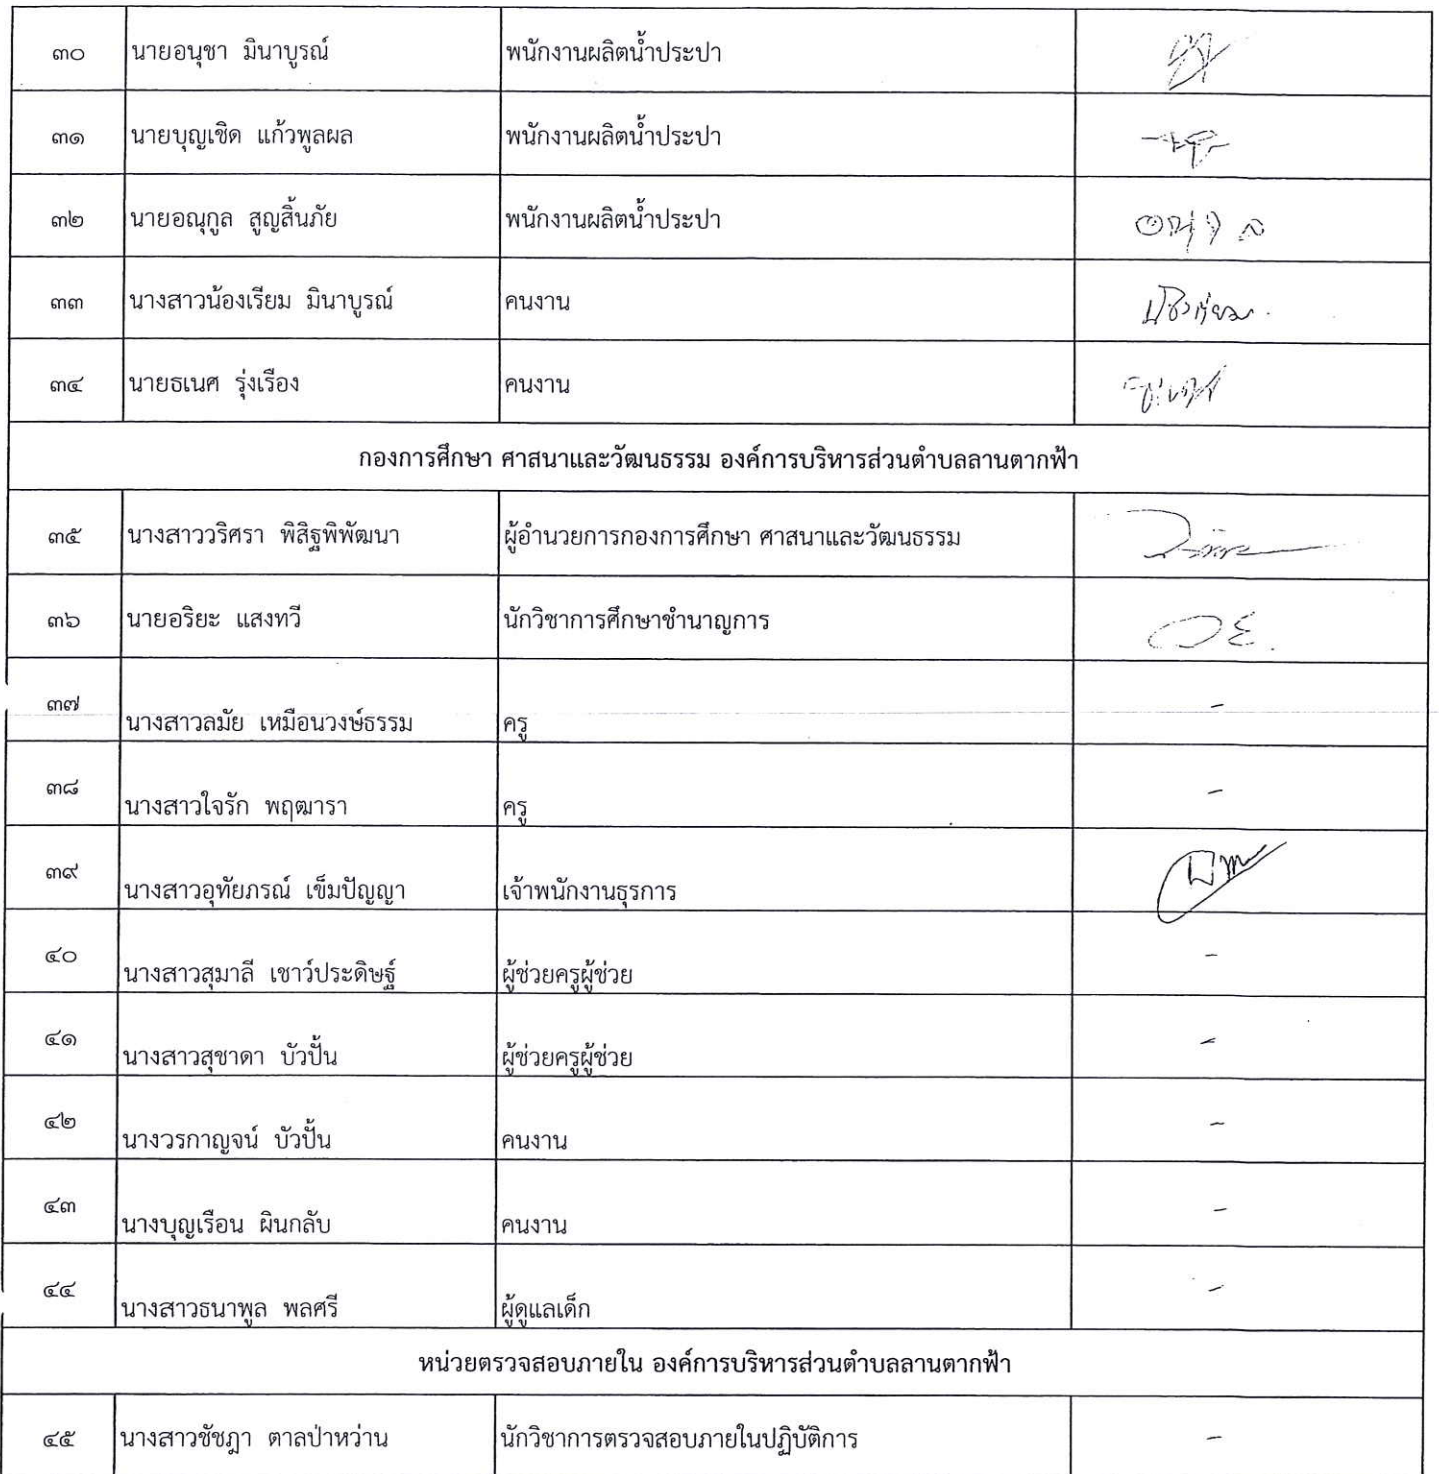 ๓๐ นายอนุชา มินาบูรณ์ พนักงานผลิตน้ำประปา
๓๑ นายบุญเชิด แก้วพูลผล พนักงานผลิตน้ำประปา
๓๒ นายอณุกูล สูญสิ้นภัย พนักงานผลิตน้ำประปา
๓๓ นางสาวน้องเรียม มินาบูรณ์ คนงาน
๓๔ นายธเนศ รุ่งเรือง คนงาน
กองการศึกษา ศาสนาและวัฒนธรรม องค์การบริหารส่วนตำบลลานตากฟ้า
๓๕ นางสาววริศรา พิสิฐพิพัฒนา ผู้อำนวยการกองการศึกษา ศาสนาและวัฒนธรรม
๓๖ นายอริยะ แสงทวี นักวิชาการศึกษาชำนาญการ
๓๗ นางสาวลมัย เหมือนวงษ์ธรรม ครู -
๓๘ นางสาวใจรัก พฤฒารา ครู -
๓๙ นางสาวอุทัยภรณ์ เข็มปัญญา เจ้าพนักงานธุรการ
๔๐ นางสาวสุมาลี เชาว์ประดิษฐ์ ผู้ช่วยครูผู้ช่วย -
๔๑ นางสาวสุชาดา บัวปั้น ผู้ช่วยครูผู้ช่วย -
๔๒ นางวรกาญจน์ บัวปั้น คนงาน -
๔๓ นางบุญเรือน ผินกลับ คนงาน -
๔๔ นางสาวธนาพูล พลศรี ผู้ดูแลเด็ก -
หน่วยตรวจสอบภายใน องค์การบริหารส่วนตำบลลานตากฟ้า
๔๕ นางสาวชัชฎา ตาลป่าหว่าน นักวิชาการตรวจสอบภายในปฏิบัติการ -